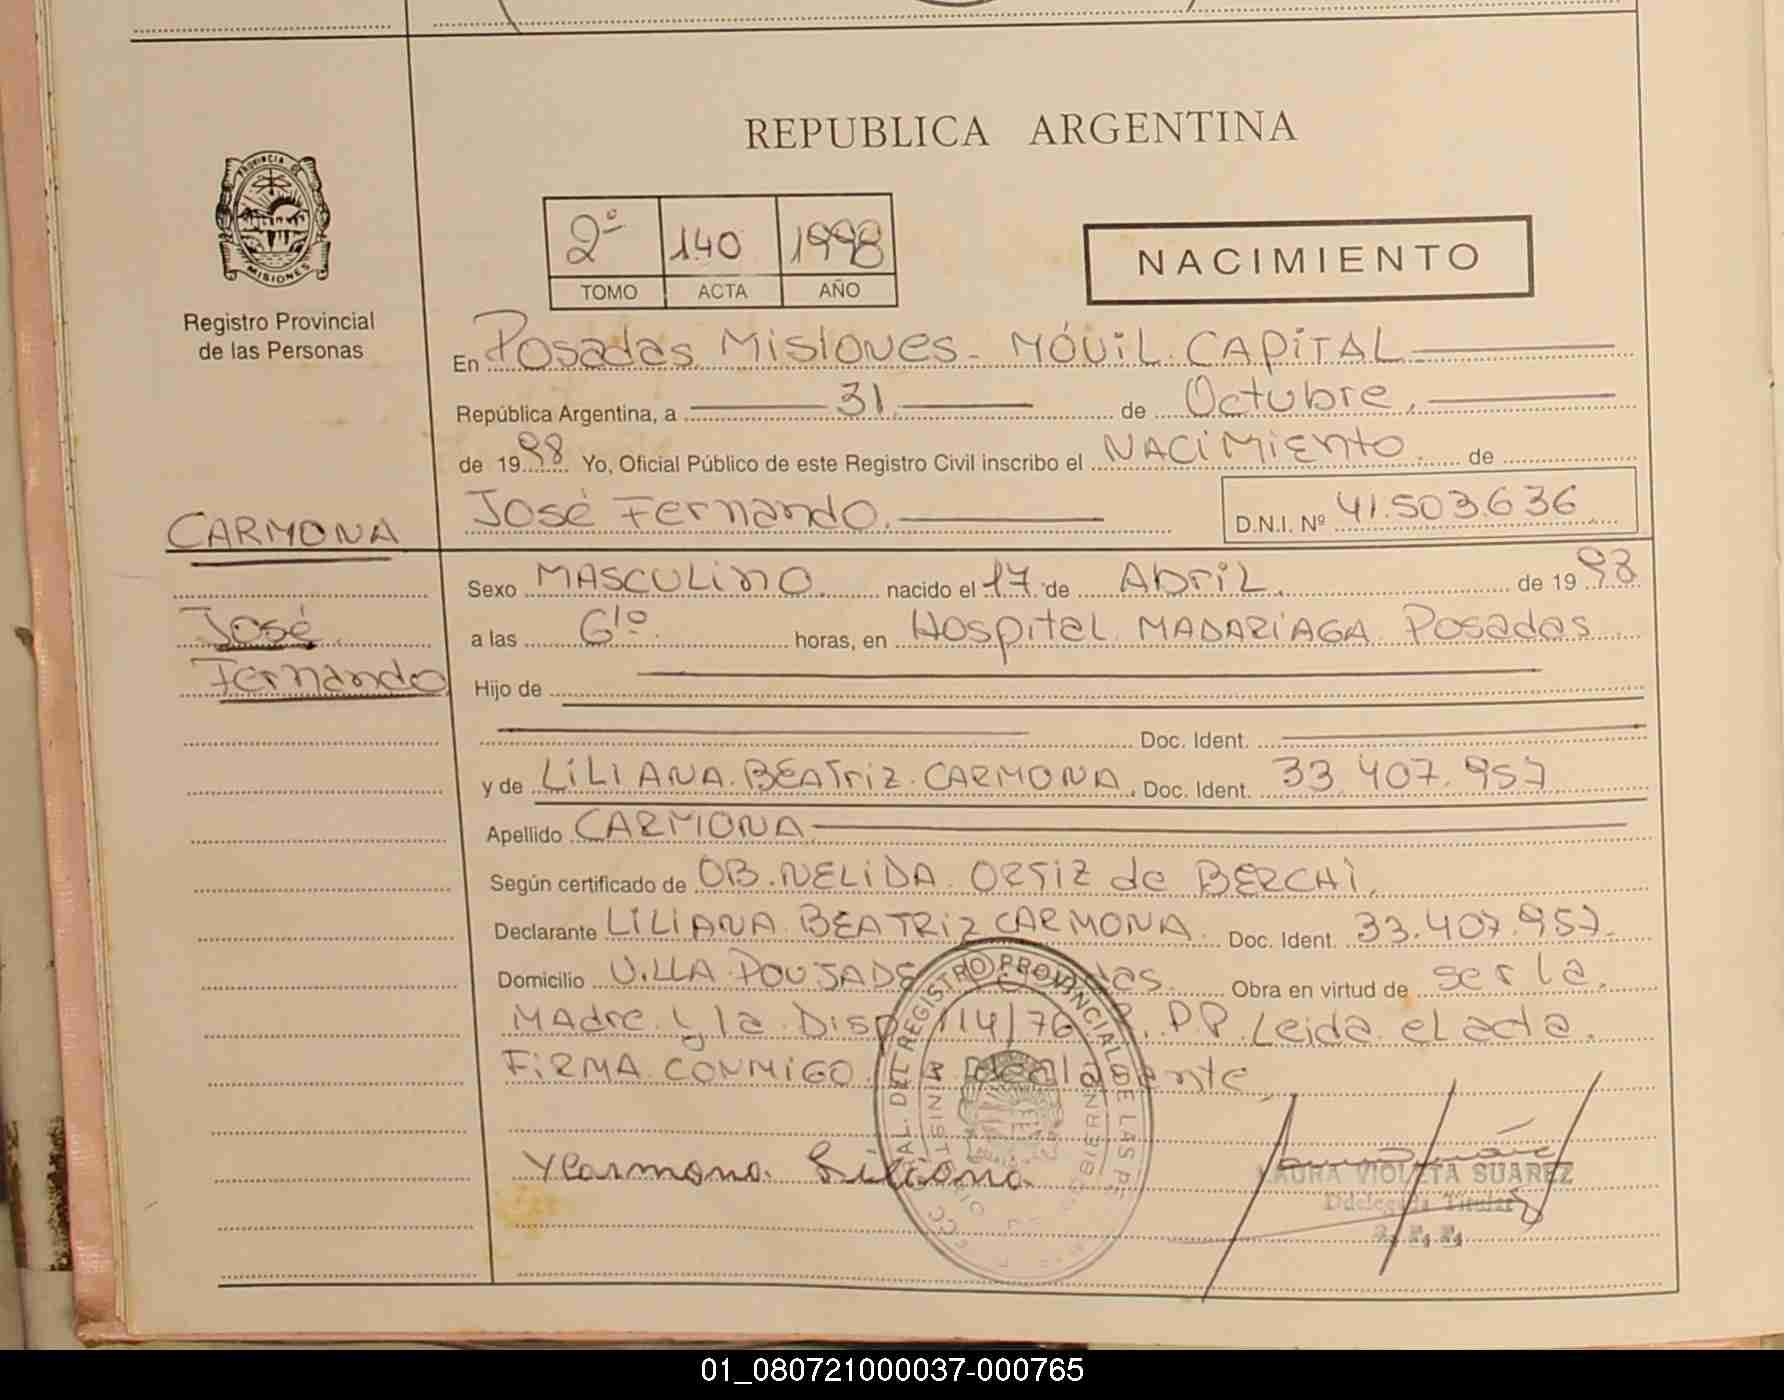 REPUBLICA ARGENTINA
PROVINCIA DE
MISIONES
Registro Provincial
de las Personas
2º 140 1998
TOMO ACTA AÑO
NACIMIENTO
En Posadas Misiones - MÓVIL CAPITAL
República Argentina, a 31 de Octubre,
de 1998 Yo, Oficial Público de este Registro Civil inscribo el NACIMIENTO de
José Fernando. D.N.I. Nº 41.503.636
CARMONA
José
Fernando
Sexo MASCULINO. nacido el 17 de ABRIL. de 1998
a las 6:10. horas, en Hospital MADARIAGA Posadas
Hijo de
Doc. Ident.
y de LILIANA BEATRIZ CARMONA. Doc. Ident. 33.407.957
Apellido CARMONA
Según certificado de OB. NELIDA ORTIZ de BERCHI.
Declarante LILIANA BEATRIZ CARMONA. Doc. Ident. 33.407.957.
Domicilio VILLA POUJADE Posadas. Obra en virtud de ser la
Madre y la Disp 114/76 R.P.P. Leida el acta.
FIRMA CONMIGO la Declarante
Carmona Liliana
LAURA VIOLETA SUAREZ
Titular
R. P. P.
DEL REGISTRO PROVINCIAL DE LAS
01_080721000037-000765